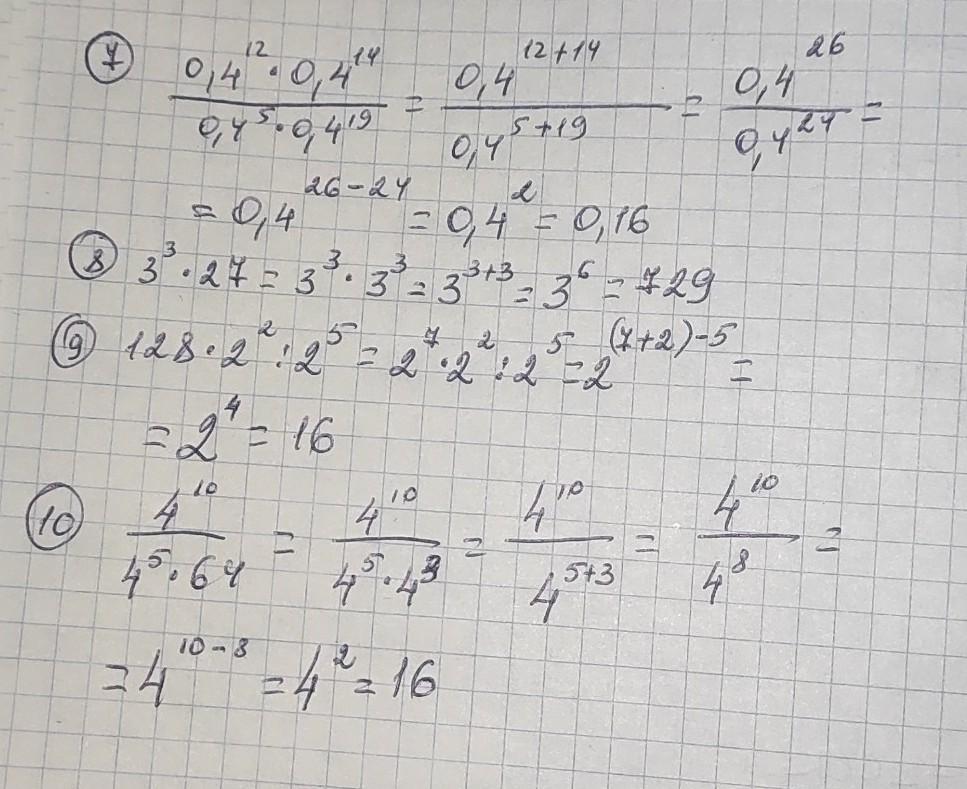 7 (0,4^12 · 0,4^14)/(0,4^5 · 0,4^19) = 0,4^(12+14)/0,4^(5+19) = 0,4^26/0,4^24 =
= 0,4^(26-24) = 0,4^2 = 0,16
8 3^3 · 27 = 3^3 · 3^3 = 3^(3+3) = 3^6 = 729
9 128 · 2^2 : 2^5 = 2^7 · 2^2 : 2^5 = 2^((7+2)-5) =
= 2^4 = 16
10 4^10/(4^5 · 64) = 4^10/(4^5 · 4^3) = 4^10/4^(5+3) = 4^10/4^8 =
= 4^(10-8) = 4^2 = 16